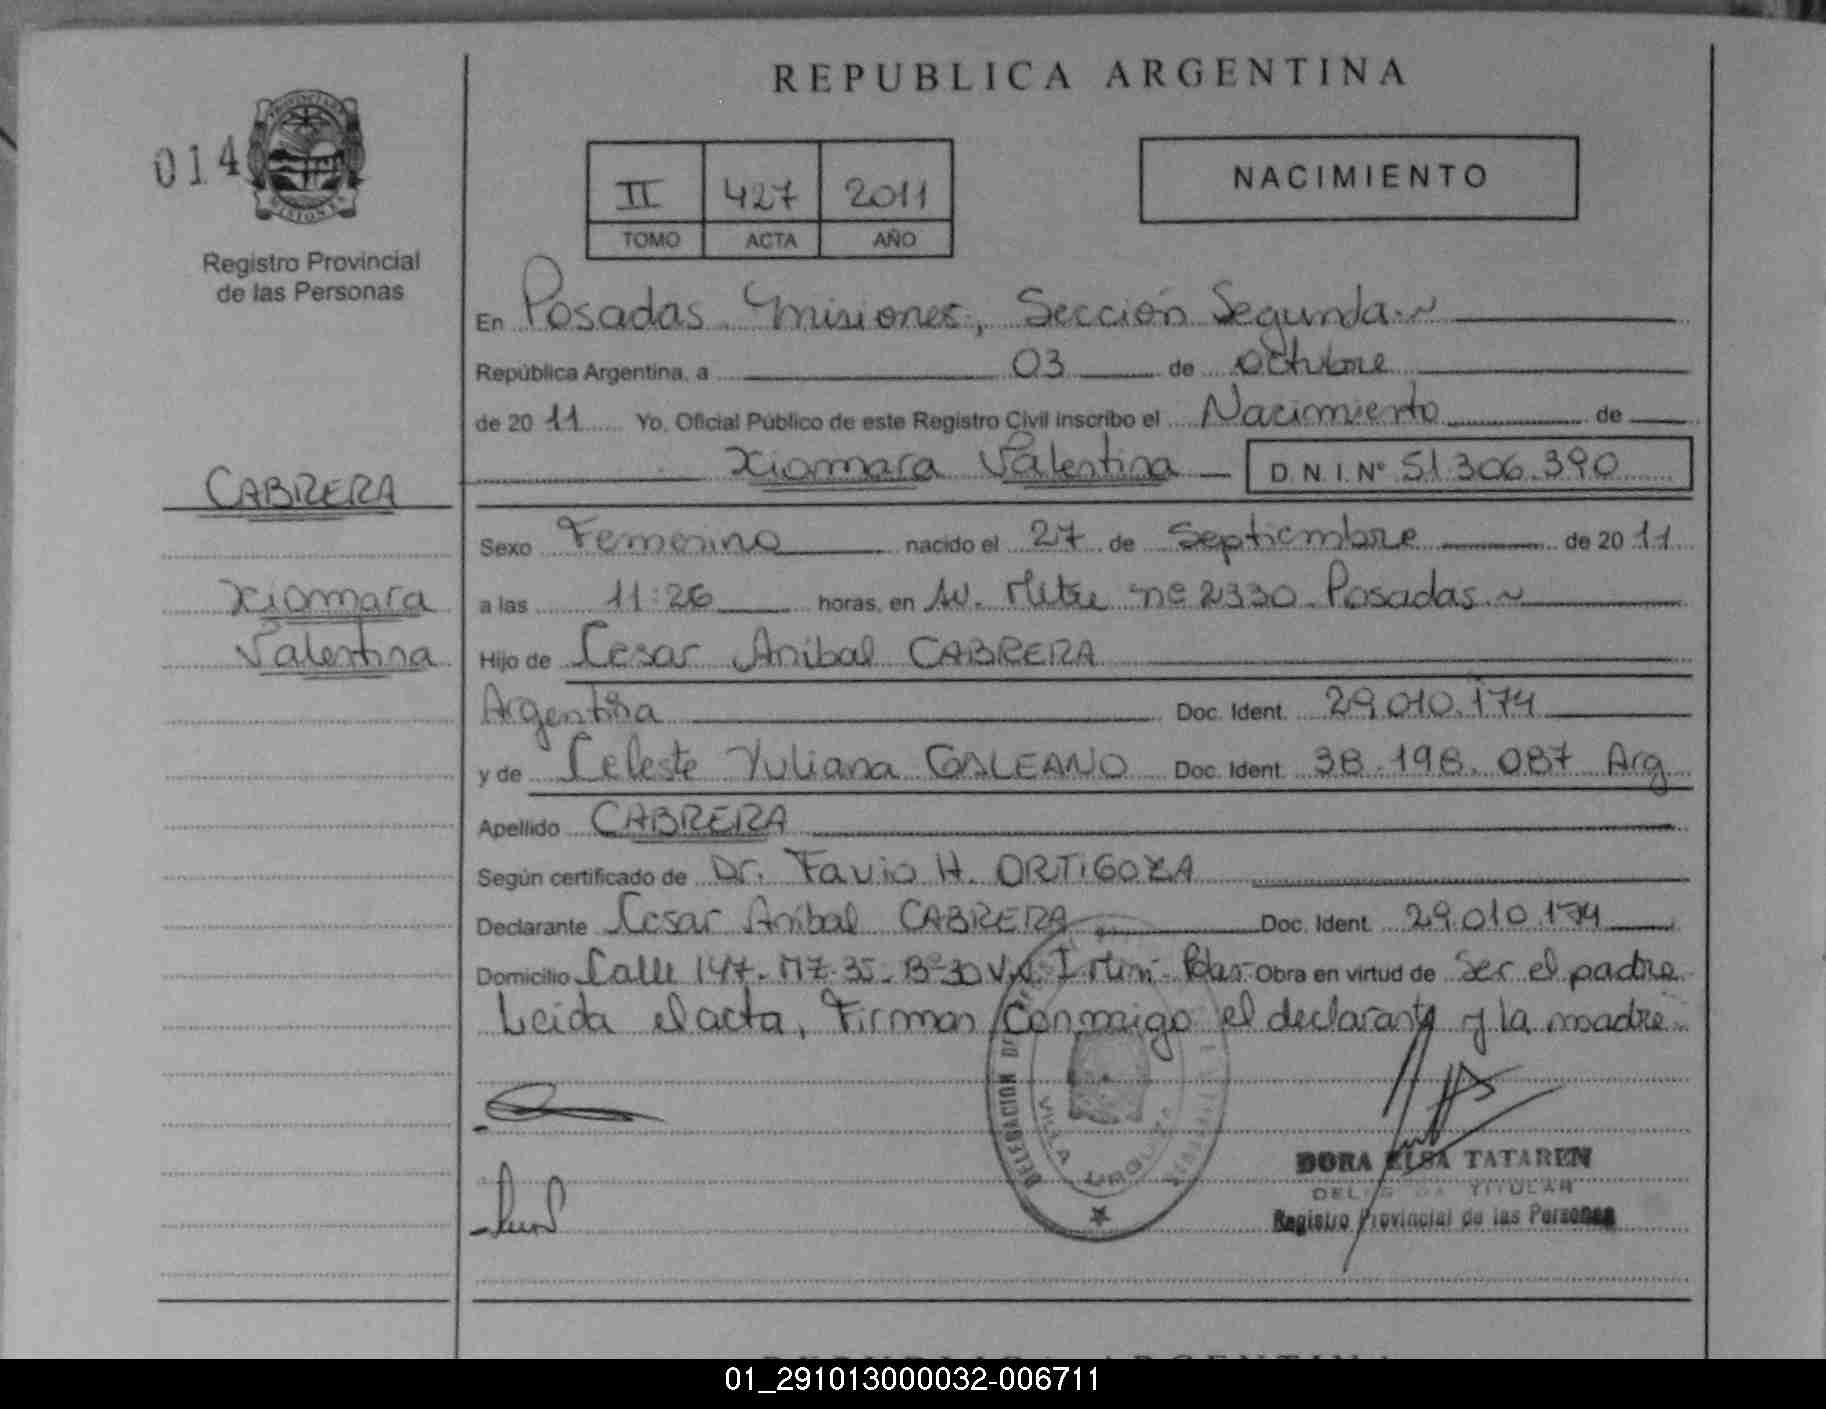 REPUBLICA ARGENTINA
014
PROVINCIA DE MISIONES
Registro Provincial
de las Personas
II 427 2011
TOMO ACTA AÑO
NACIMIENTO
En Posadas Misiones, Sección Segunda
República Argentina, a 03 de octubre
de 2011 Yo, Oficial Público de este Registro Civil inscribo el Nacimiento de
Xiomara Valentina D.N.I.Nº 51.306.390
CABRERA
Xiomara
Valentina
Sexo Femenino nacido el 27 de Septiembre de 2011
a las 11:26 horas, en Av. Mitre nº 2330 Posadas
Hijo de Cesar Anibal CABRERA
Argentina Doc. Ident. 29.010.174
y de Celeste Yuliana GALEANO Doc. Ident. 38.198.087 Arg
Apellido CABRERA
Según certificado de Dr. Favio H. ORTIGOZA
Declarante Cesar Anibal CABRERA Doc. Ident. 29.010.174
Domicilio Calle 147- MZ-35- Bº-30 Obra en virtud de Ser el padre
Leida el acta, Firman Conmigo el declarante y la madre
DELEGACION
VILLA URQUIZA
DORA ELSA TATAREN
TITULAR
Registro Provincial de las Personas
01_291013000032-006711